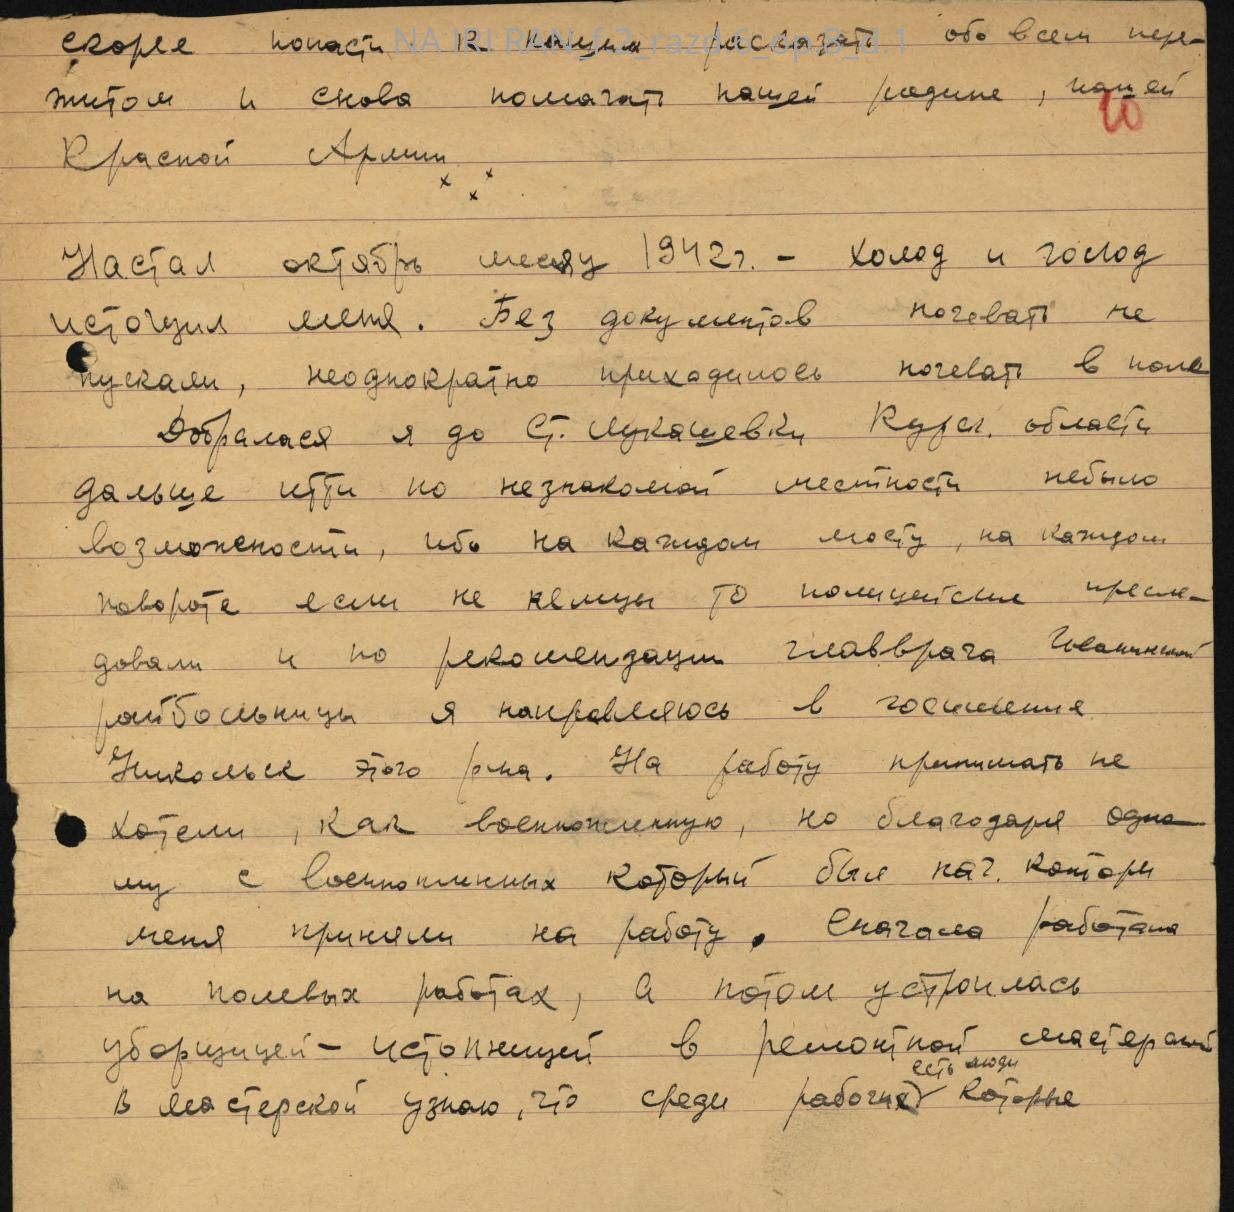 скорее попасть к нашим рассказать обо всем пере-
NA IRI RAN_f.2_razd.6_op.3_d.1
житом и снова помагать нашей родине, нашей
10
Красной Армии.
x x x
Настал октябрь месяц 1942 г. - холод и голод
истощил меня. Без документов ночевать не
пускали, неоднократно приходилось ночевать в поле
Добралася я до ст. Лукашевки Курск. области
дальше итти по незнакомой местности небыло
возможности, ибо на каждом мосту, на каждом
повороте если не немцы то полицейские пресле-
довали и по рекомендации главврача
райбольницы я направляюсь в госимение
Никольск этого р-на. На работу принимать не
хотели, как военнопленную, но благодаря одно-
му с военнопленных который был нач. конторы
меня приняли на работу. Сначала работала
на полевых работах, а потом устроилась
уборщицей - истопницей в ремонтной мастерской
есть люди
в мастерской узнаю, что среди рабочих которые